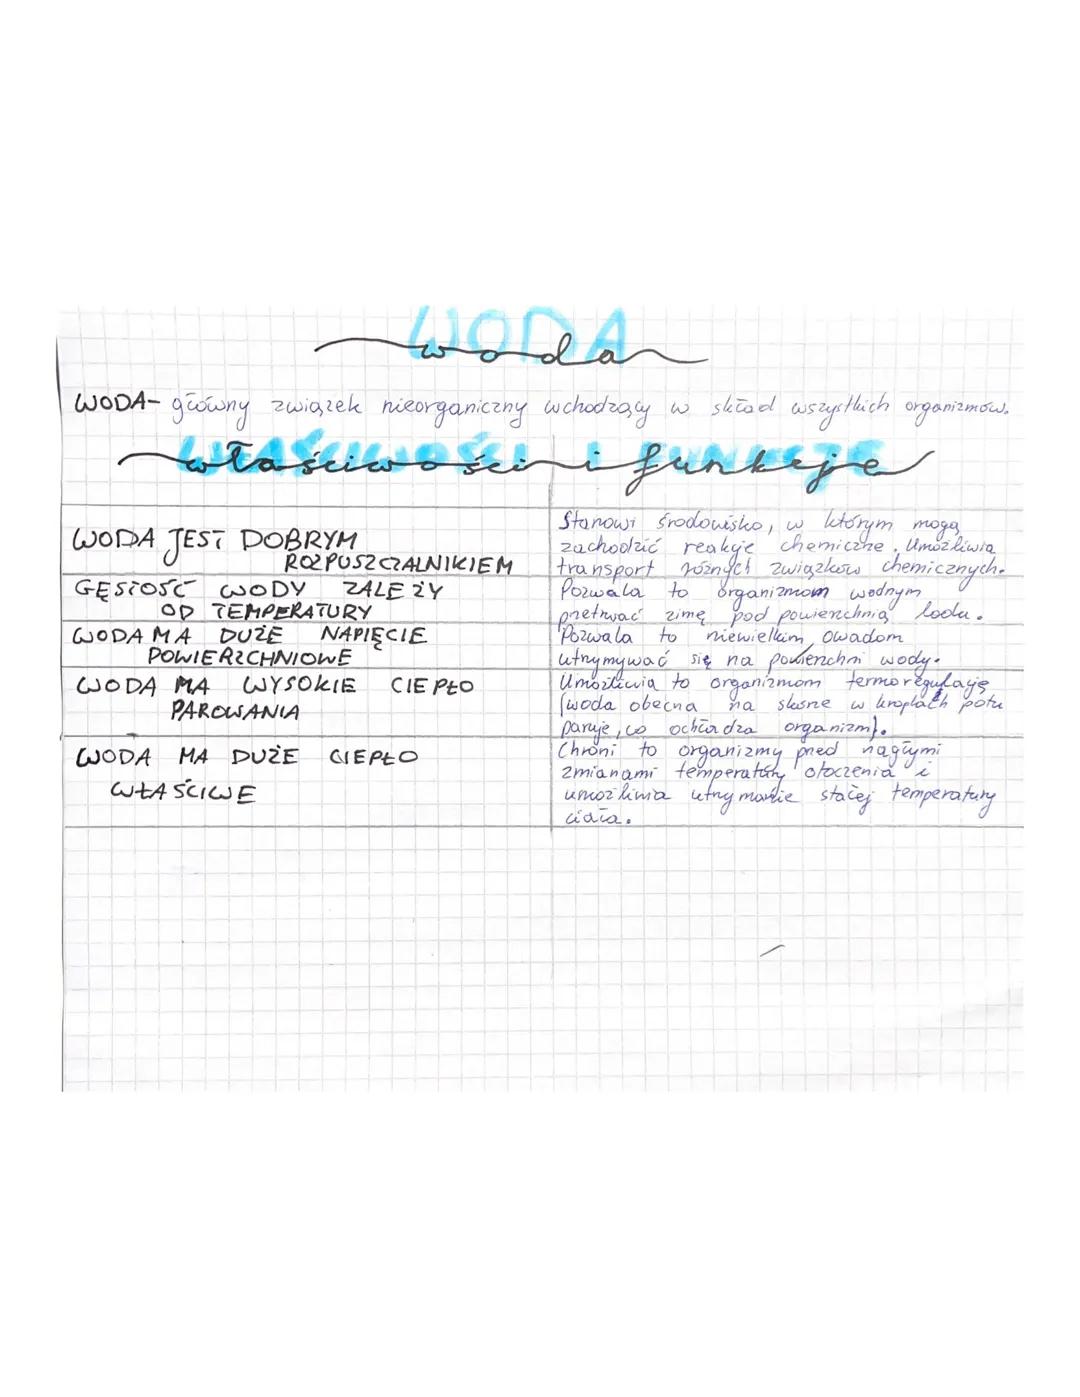 WODA
woda
WODA- główny związek nieorganiczny wchodzący w skład wszystkich organizmów.
WŁAŚCIWOŚCI I FUNKCJE
właściwości i funkcje
WODA JEST DOBRYM
ROZPUSZCZALNIKIEM
Stanowi środowisko, w którym mogą
zachodzić reakcje chemiczne. Umożliwia
transport różnych związków chemicznych.
GĘSTOŚĆ WODY ZALEŻY
OD TEMPERATURY
Pozwala to organizmom wodnym
przetrwać zimę pod powierzchnią lodu.
WODA MA DUŻE NAPIĘCIE
POWIERZCHNIOWE
Pozwala to niewielkim owadom
utrzymywać się na powierzchni wody.
WODA MA WYSOKIE CIEPŁO
PAROWANIA
Umożliwia to organizmom termoregulację
(woda obecna na skórze w kroplach potu
paruje, co ochładza organizm).
WODA MA DUŻE CIEPŁO
WŁAŚCIWE
Chroni to organizmy przed nagłymi
zmianami temperatury otoczenia i
umożliwia utrzymanie stałej temperatury
ciała.